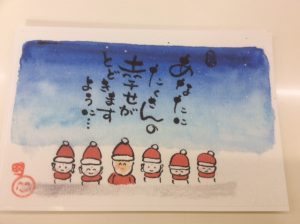 あなたに
たくさんの
幸せが
とどきます
ように…